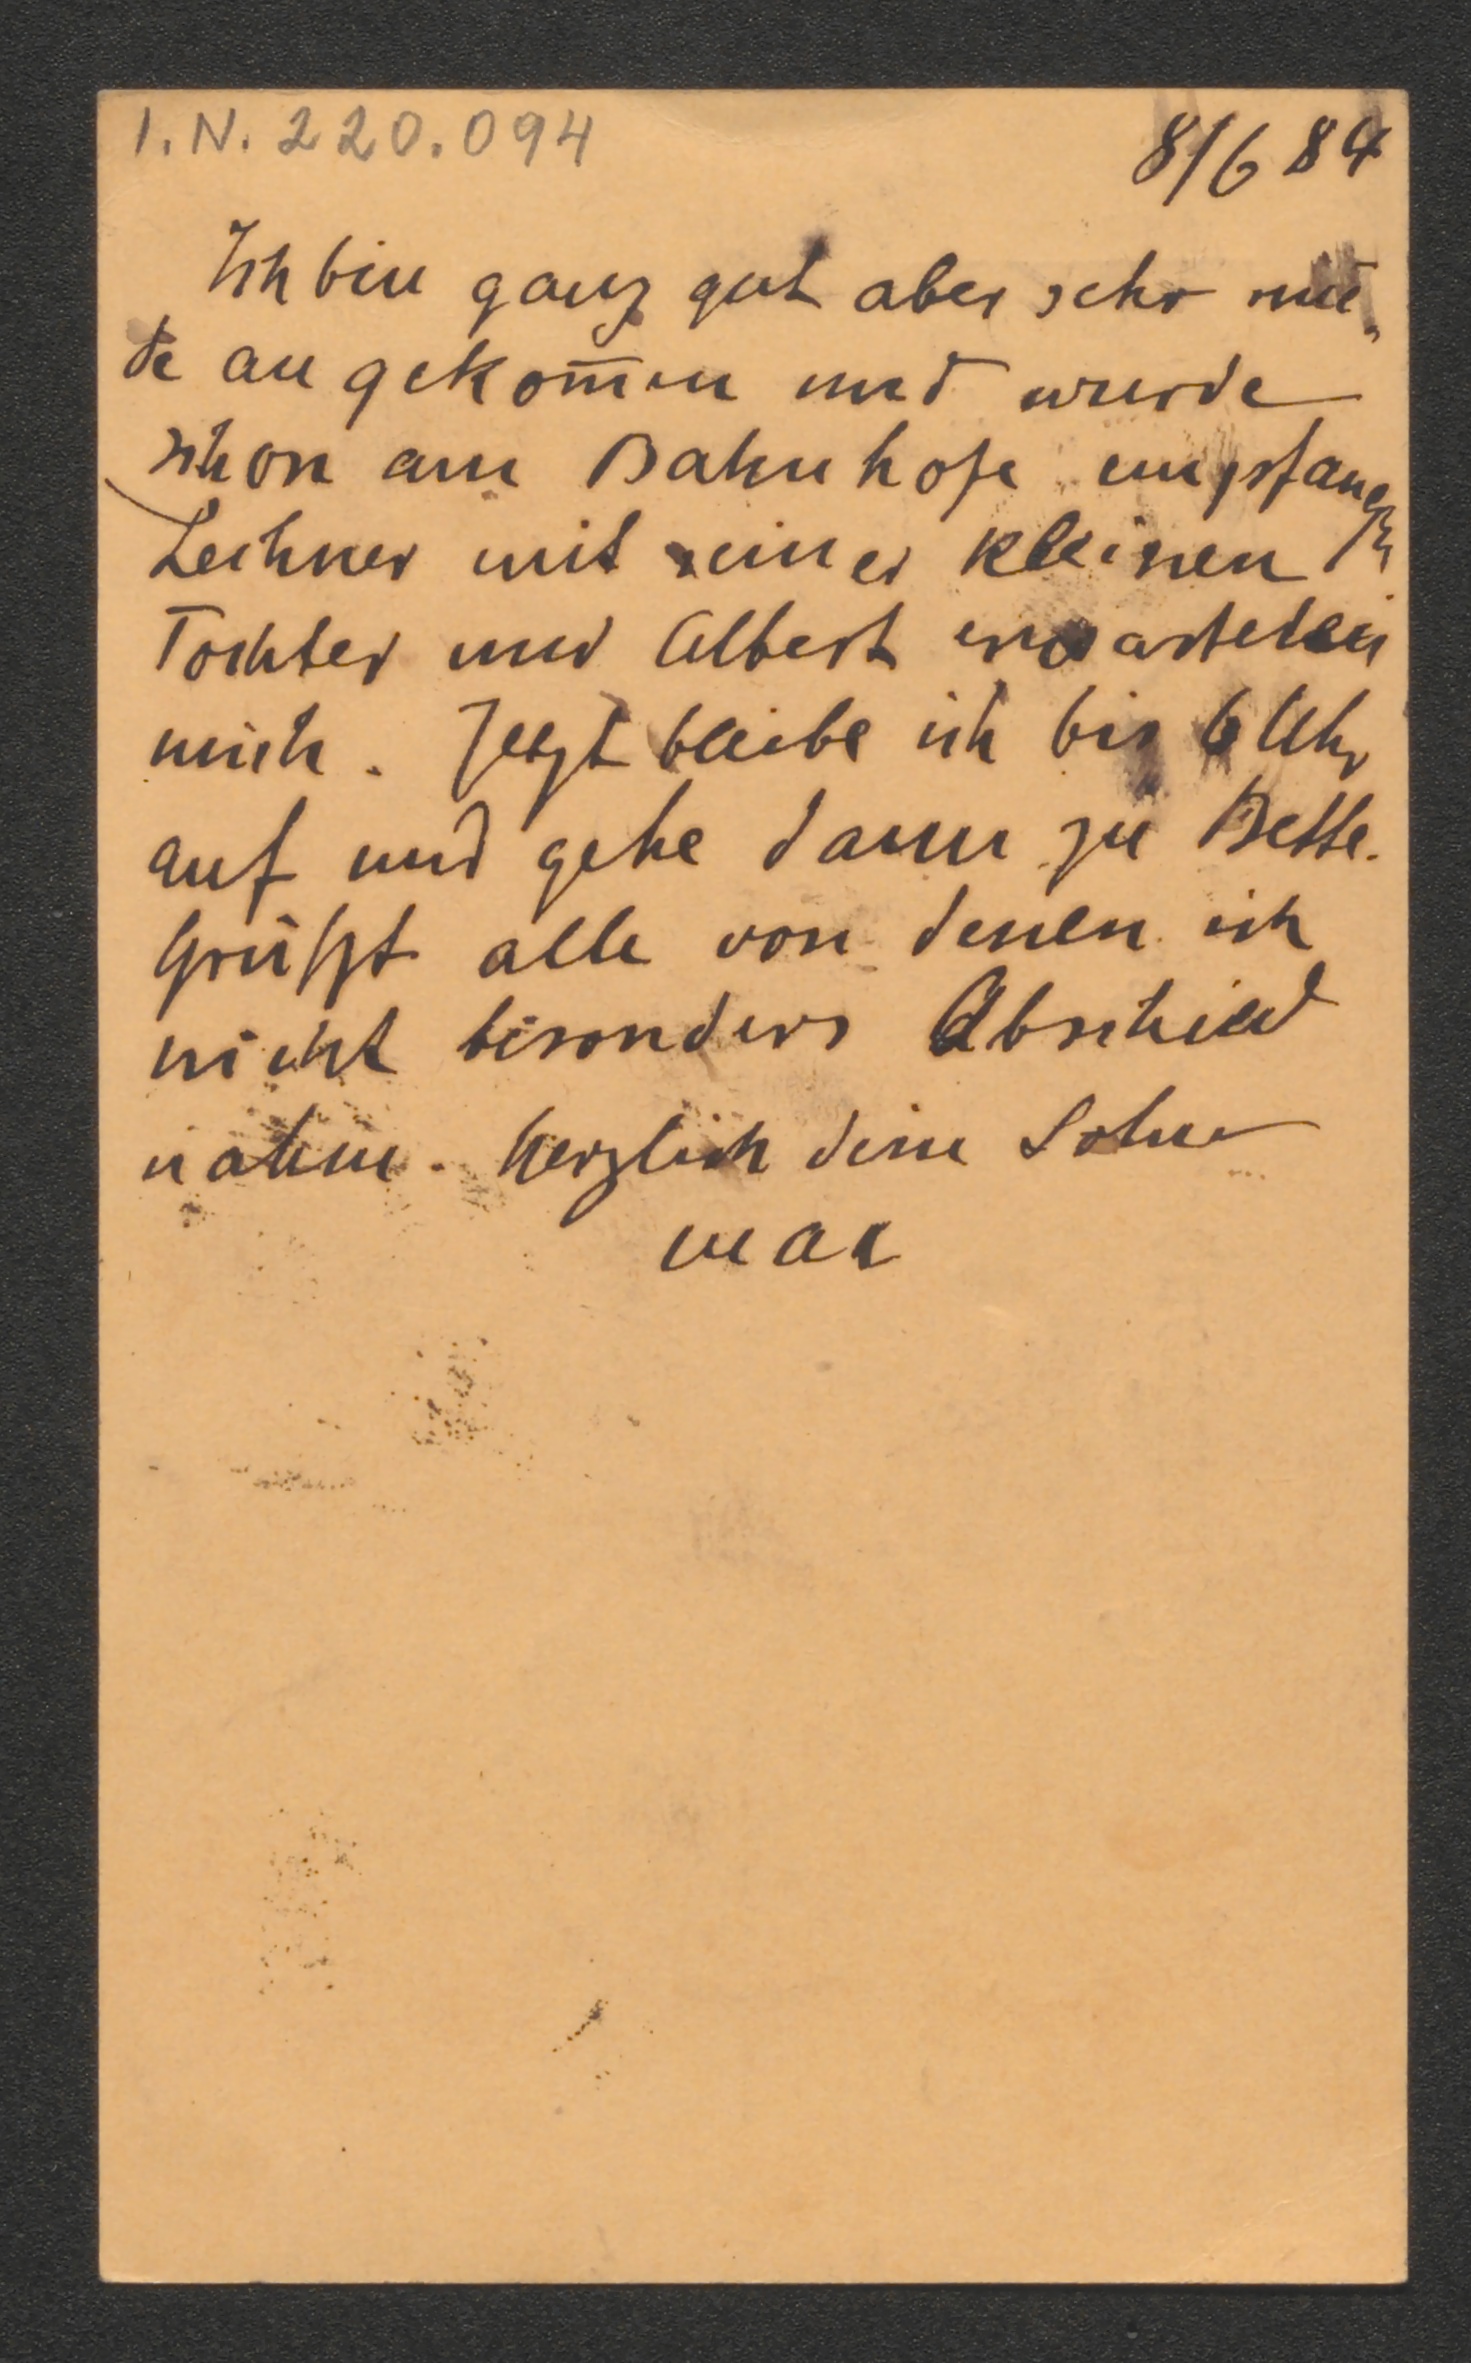 I.N. 220.094
8/6 84
Ich bin ganz gut aber sehr mü-
de angekom̄en und wurde
schon am Bahnhofe empfangen
Lechner mit seiner kleinen
Tochter und Albert erwarteten
mich. Jetzt bleibe ich bis 6 Uhr
auf und gehe dann zu Bette.
Grüßt alle von denen ich
nicht besonders Abschied
nahm. Herzlich dein Sohn
Max